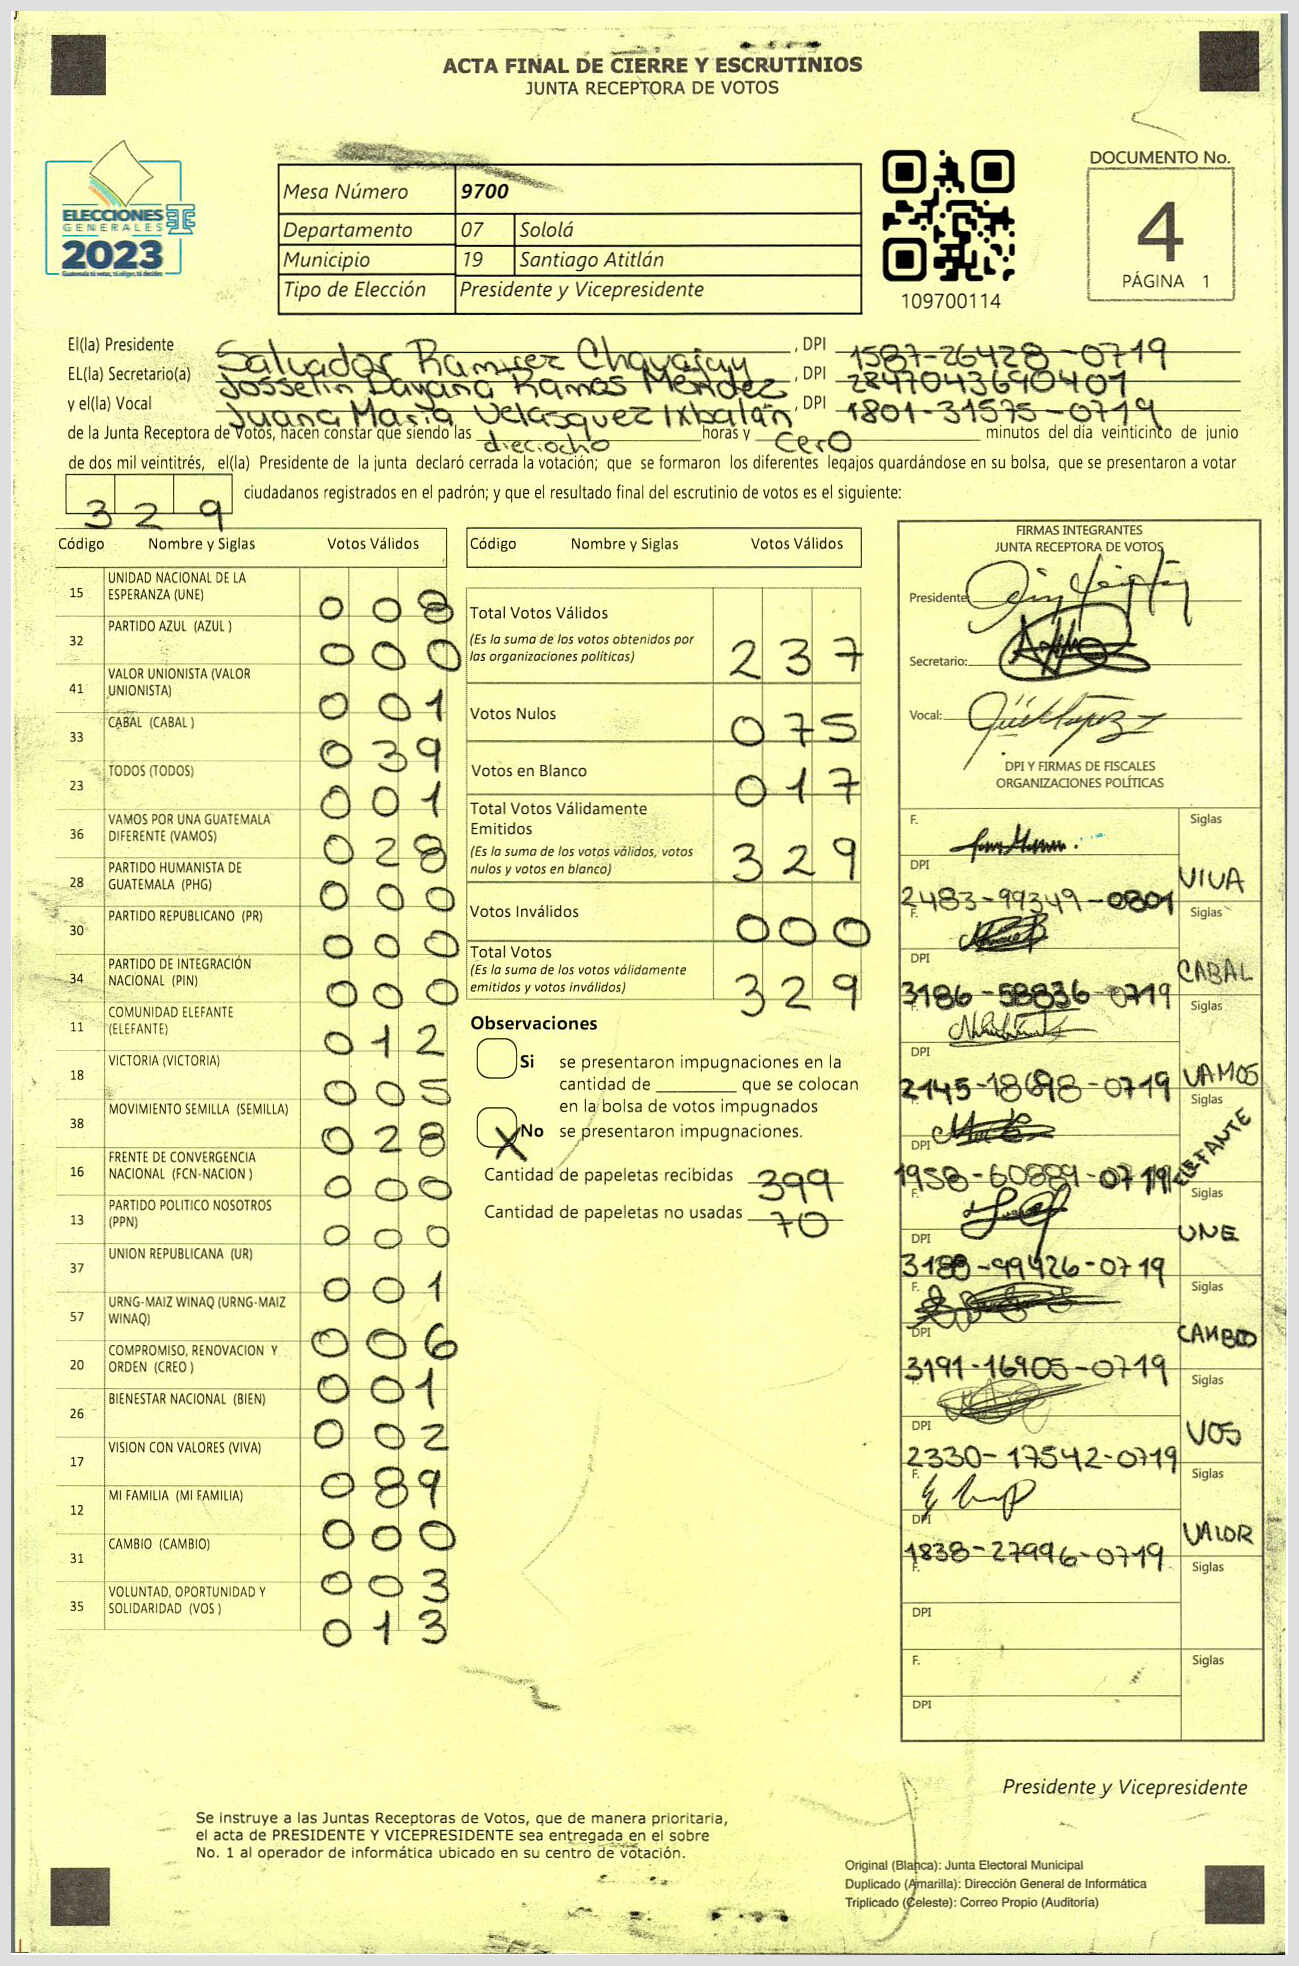 ACTA FINAL DE CIERRE Y ESCRUTINIOS
JUNTA RECEPTORA DE VOTOS
ELECCIONES
GENERALES
2023
Guatemala tú votas, tú eliges, tú decides
Mesa Número 9700
Departamento 07 Sololá
Municipio 19 Santiago Atitlán
Tipo de Elección Presidente y Vicepresidente
109700114
DOCUMENTO No.
4
PÁGINA 1
El(la) Presidente Salvador Ramirez Chavajay, DPI 1587-26428-0719
EL(la) Secretario(a) Josselin Dayana Ramos Méndez, DPI 2847043690401
y el(la) Vocal Juana María Velasquez Ixbalán, DPI 1801-31575-0719
de la Junta Receptora de Votos, hacen constar que siendo las dieciocho horas y cero minutos del día veinticinco de junio
de dos mil veintitrés, el(la) Presidente de la junta declaró cerrada la votación; que se formaron los diferentes legajos quardándose en su bolsa, que se presentaron a votar
329 ciudadanos registrados en el padrón; y que el resultado final del escrutinio de votos es el siguiente:
Código Nombre y Siglas Votos Válidos
15 UNIDAD NACIONAL DE LA ESPERANZA (UNE) 008
32 PARTIDO AZUL (AZUL ) 000
41 VALOR UNIONISTA (VALOR UNIONISTA) 001
33 CABAL (CABAL ) 039
23 TODOS (TODOS) 001
36 VAMOS POR UNA GUATEMALA DIFERENTE (VAMOS) 028
28 PARTIDO HUMANISTA DE GUATEMALA (PHG) 000
30 PARTIDO REPUBLICANO (PR) 000
34 PARTIDO DE INTEGRACIÓN NACIONAL (PIN) 000
11 COMUNIDAD ELEFANTE (ELEFANTE) 012
18 VICTORIA (VICTORIA) 005
38 MOVIMIENTO SEMILLA (SEMILLA) 028
16 FRENTE DE CONVERGENCIA NACIONAL (FCN-NACION ) 000
13 PARTIDO POLITICO NOSOTROS (PPN) 000
37 UNION REPUBLICANA (UR) 001
57 URNG-MAIZ WINAQ (URNG-MAIZ WINAQ) 006
20 COMPROMISO, RENOVACION Y ORDEN (CREO ) 001
26 BIENESTAR NACIONAL (BIEN) 002
17 VISION CON VALORES (VIVA) 089
12 MI FAMILIA (MI FAMILIA) 000
31 CAMBIO (CAMBIO) 003
35 VOLUNTAD, OPORTUNIDAD Y SOLIDARIDAD (VOS ) 013
Código Nombre y Siglas Votos Válidos
Total Votos Válidos 237
(Es la suma de los votos obtenidos por
las organizaciones políticas)
Votos Nulos 075
Votos en Blanco 017
Total Votos Válidamente
Emitidos 329
(Es la suma de los votos válidos, votos
nulos y votos en blanco)
Votos Inválidos 000
Total Votos 329
(Es la suma de los votos válidamente
emitidos y votos inválidos)
Observaciones
Si se presentaron impugnaciones en la
cantidad de ________ que se colocan
en la bolsa de votos impugnados
X No se presentaron impugnaciones.
Cantidad de papeletas recibidas 399
Cantidad de papeletas no usadas 70
FIRMAS INTEGRANTES
JUNTA RECEPTORA DE VOTOS
Presidente:
Secretario:
Vocal:
DPI Y FIRMAS DE FISCALES
ORGANIZACIONES POLÍTICAS
F. Siglas
DPI 2483-99349-0801 VIVA
F. Siglas
DPI 3186-58836-0719 CABAL
F. Siglas
DPI 2145-18698-0719 VAMOS
F. Siglas
DPI 1958-60889-0719 ELEFANTE
F. Siglas
DPI 3188-99426-0719 UNE
F. Siglas
DPI 3191-16905-0719 CAMBIO
F. Siglas
DPI 2330-17542-0719 VOS
F. Siglas
DPI 1838-27996-0719 VALOR
F. Siglas
DPI
F. Siglas
DPI
Presidente y Vicepresidente
Se instruye a las Juntas Receptoras de Votos, que de manera prioritaria,
el acta de PRESIDENTE Y VICEPRESIDENTE sea entregada en el sobre
No. 1 al operador de informática ubicado en su centro de votación.
Original (Blanca): Junta Electoral Municipal
Duplicado (Amarilla): Dirección General de Informática
Triplicado (Celeste): Correo Propio (Auditoría)